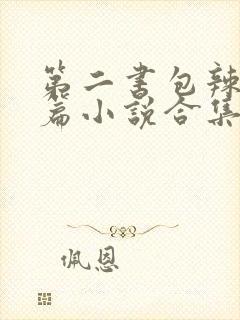 第二书包辣
篇小说合集
佩恩